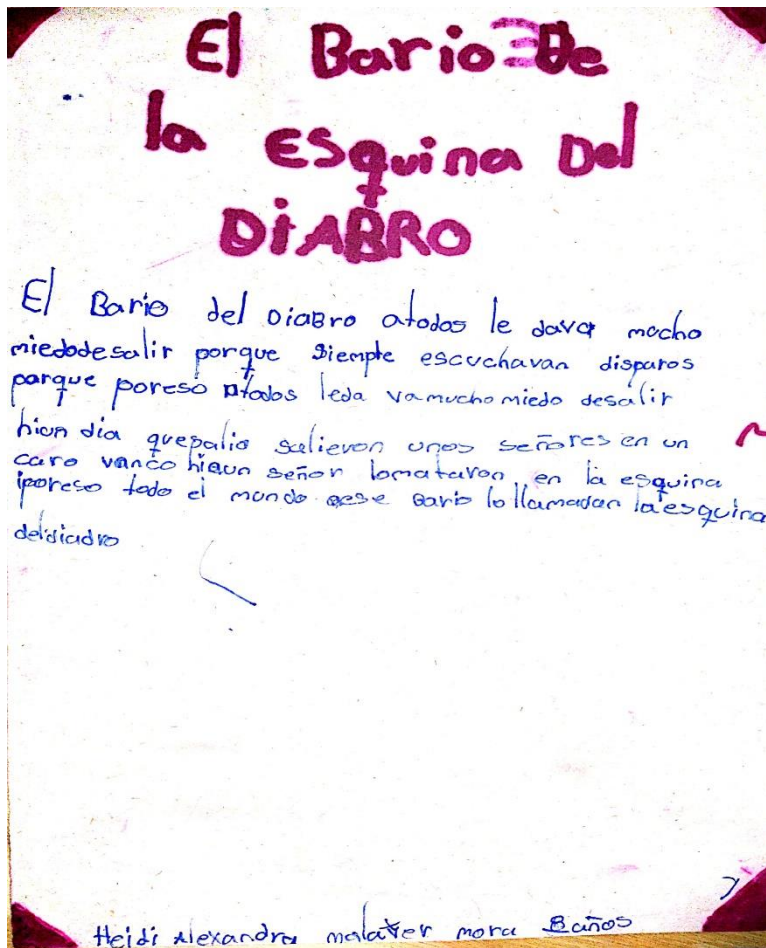 El Bario De
la ESquina Del
DiABRO
El Bario del DiaBro atodos le dava mocho
miedodesalir porque Siempte escuchavan disparos
parque poreso atodos leda vamucho miedo desalir
hiun dia quesalio salieron unos señores en un
caro vanco hiaun señor lomataron en la esquina
iporeso todo el mundo aese bario lo llamadan la esquina
deldiadro
Heidi Alexandra malaver mora 8 años